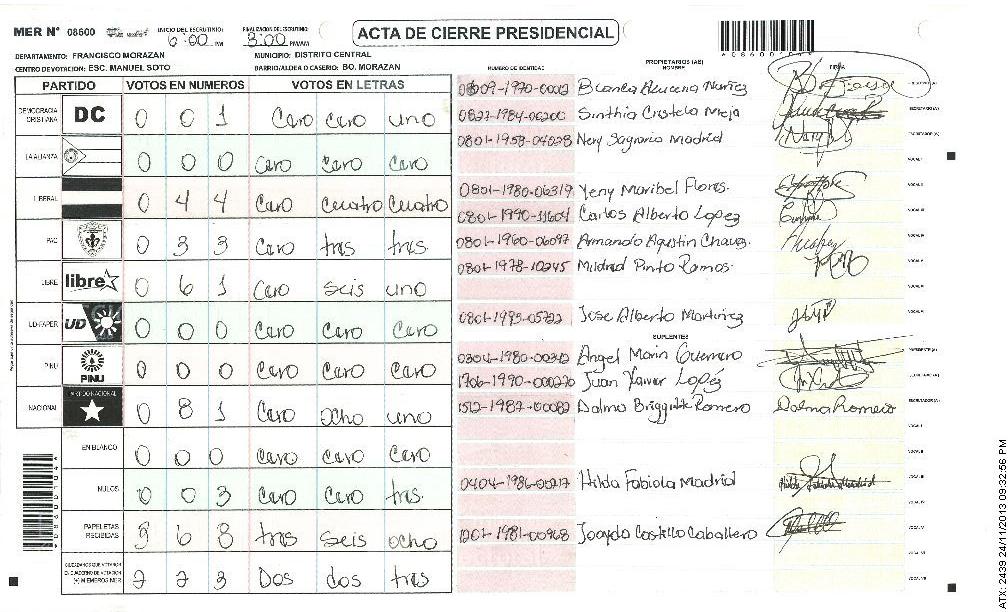 MER Nº 08600
INICIO DEL ESCRUTINIO: 6:00 PM
FINALIZACION DEL ESCRUTINIO: 8:00 PM/AM
ACTA DE CIERRE PRESIDENCIAL
DEPARTAMENTO: FRANCISCO MORAZAN
MUNICIPIO: DISTRITO CENTRAL
CENTRO DE VOTACION: ESC. MANUEL SOTO
BARRIO/ALDEA O CASERIO: BO. MORAZAN
PARTIDO VOTOS EN NUMEROS VOTOS EN LETRAS
DEMOCRACIA CRISTIANA DC 0 0 1 Cero cero uno
LA ALIANZA 0 0 0 Cero Cero Cero
LIBERAL 0 4 4 Cero Cuatro Cuatro
PAC 0 3 3 Cero tres tres
LIBRE libre 0 6 1 Cero seis uno
UD-FAPER UD 0 0 0 Cero Cero Cero
PINU PINU 0 0 0 Cero Cero Cero
NACIONAL PARTIDO NACIONAL 0 8 1 Cero ocho uno
EN BLANCO 0 0 0 Cero Cero Cero
NULOS 0 0 3 Cero Cero tres
PAPELETAS RECIBIDAS 3 6 8 tres seis ocho
CIUDADANOS QUE VOTARON EN CUADERNO DE VOTACION (+) MIEMBROS MER 2 2 3 Dos dos tres
NUMERO DE IDENTIDAD
PROPIETARIOS (AS)
NOMBRE
FIRMA
Blanca Azucena Nuñez
0827-1984-00200 Sinthia Cristela Mejia
0801-1958-04028 Nery Sagrario Madrid
0801-1980-06319 Yeny Maribel Flores.
0801-1990-11604 Carlos Alberto Lopez
0801-1960-06097 Armando Agustin Chavez.
0801-1978-10245 Mildred Pinto Ramos.
0801-1995-05722 Jose Alberto Martinez
SUPLENTES
Angel Marin Guerrero
Juan Xavier Lopéz
1512-1987-00082 Dalma Briggitte Romero Dalma Romero
0404-1986-00217 Hilda Fabiola Madrid
1201-1981-00968 Castillo Caballero
ATX: 2439 24/11/2013 09:32:56 PM